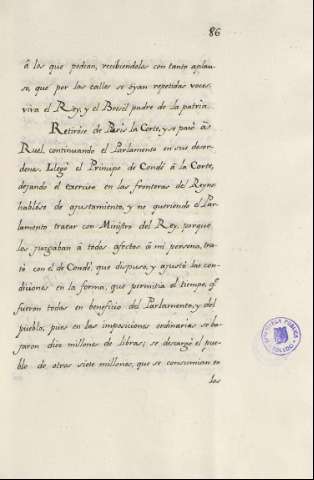 86
â los que podian, recibiendola con tanto aplau-
so, que por las calles se oÿan repetidas voces,
viva el Rey, y el Bresél padre de la patria.
Retiróse de París la Corte, y se pasó â S.ⁿ
Ruel, continuando el Parlamento en sus desor-
denes. Llegó el Principe de Condé â la Corte,
dejando el exercito en las fronteras del Reyno
hablóse de ajustamiento, y no queriendo el Par-
lamento tratar con Ministro del Rey, porque
los juzgaban â todos afectos â mi persona, tra-
tó con el de Condé, que dispuso, y ajustó las con-
diciones en la forma, que permitia el tiempo, q.ᵉ
fueron todas en beneficio del Parlamento, y del
pueblo, pues en las imposiciones ordinarias se ba-
jaron diez millones de libras; se descargó el pue-
blo de otros siete millones, que se consumian en
los
BIBLIOTECA PUBLICA
TOLEDO